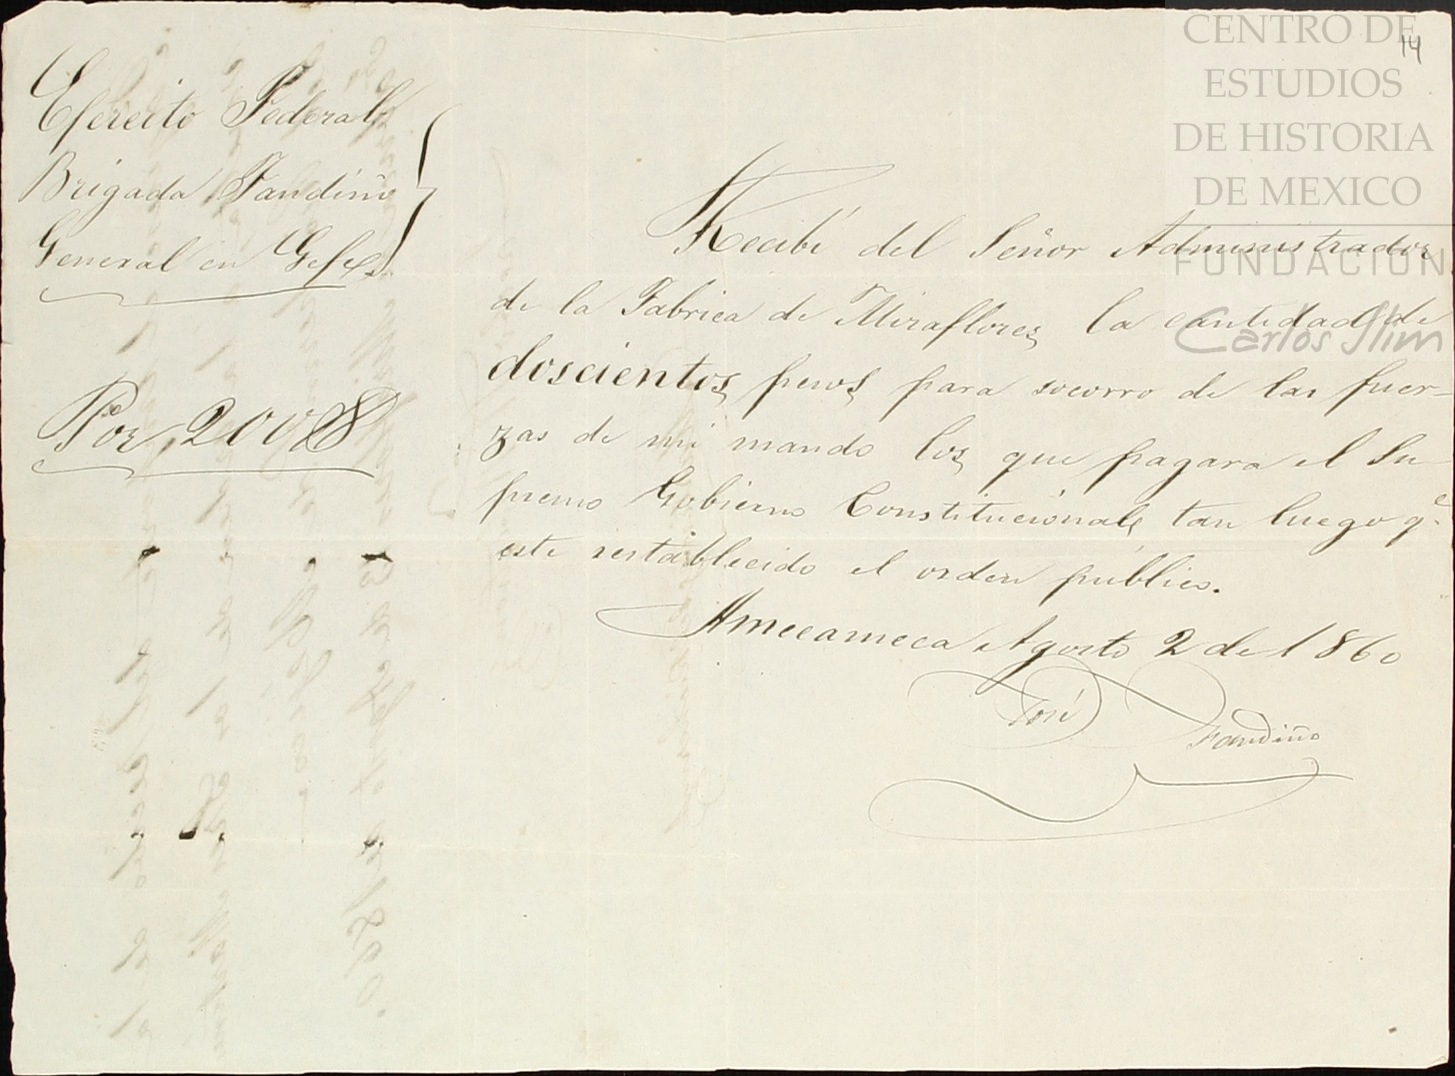 14
Ejercito Federal
Brigada Fandiño
General en Gefe
Por 200 $
Recibí del Señor Administrador
de la Fabrica de Miraflores la cantidad de
doscientos pesos para socorro de las fuer-
zas de mi mando los que pagara el Su
premo Gobierno Constitucional tan luego q.e
este restablecido el orden público.
Amecameca Agosto 2 de 1860
José Fandiño
CENTRO DE
ESTUDIOS
DE HISTORIA
DE MEXICO
FUNDACION
Carlos Slim